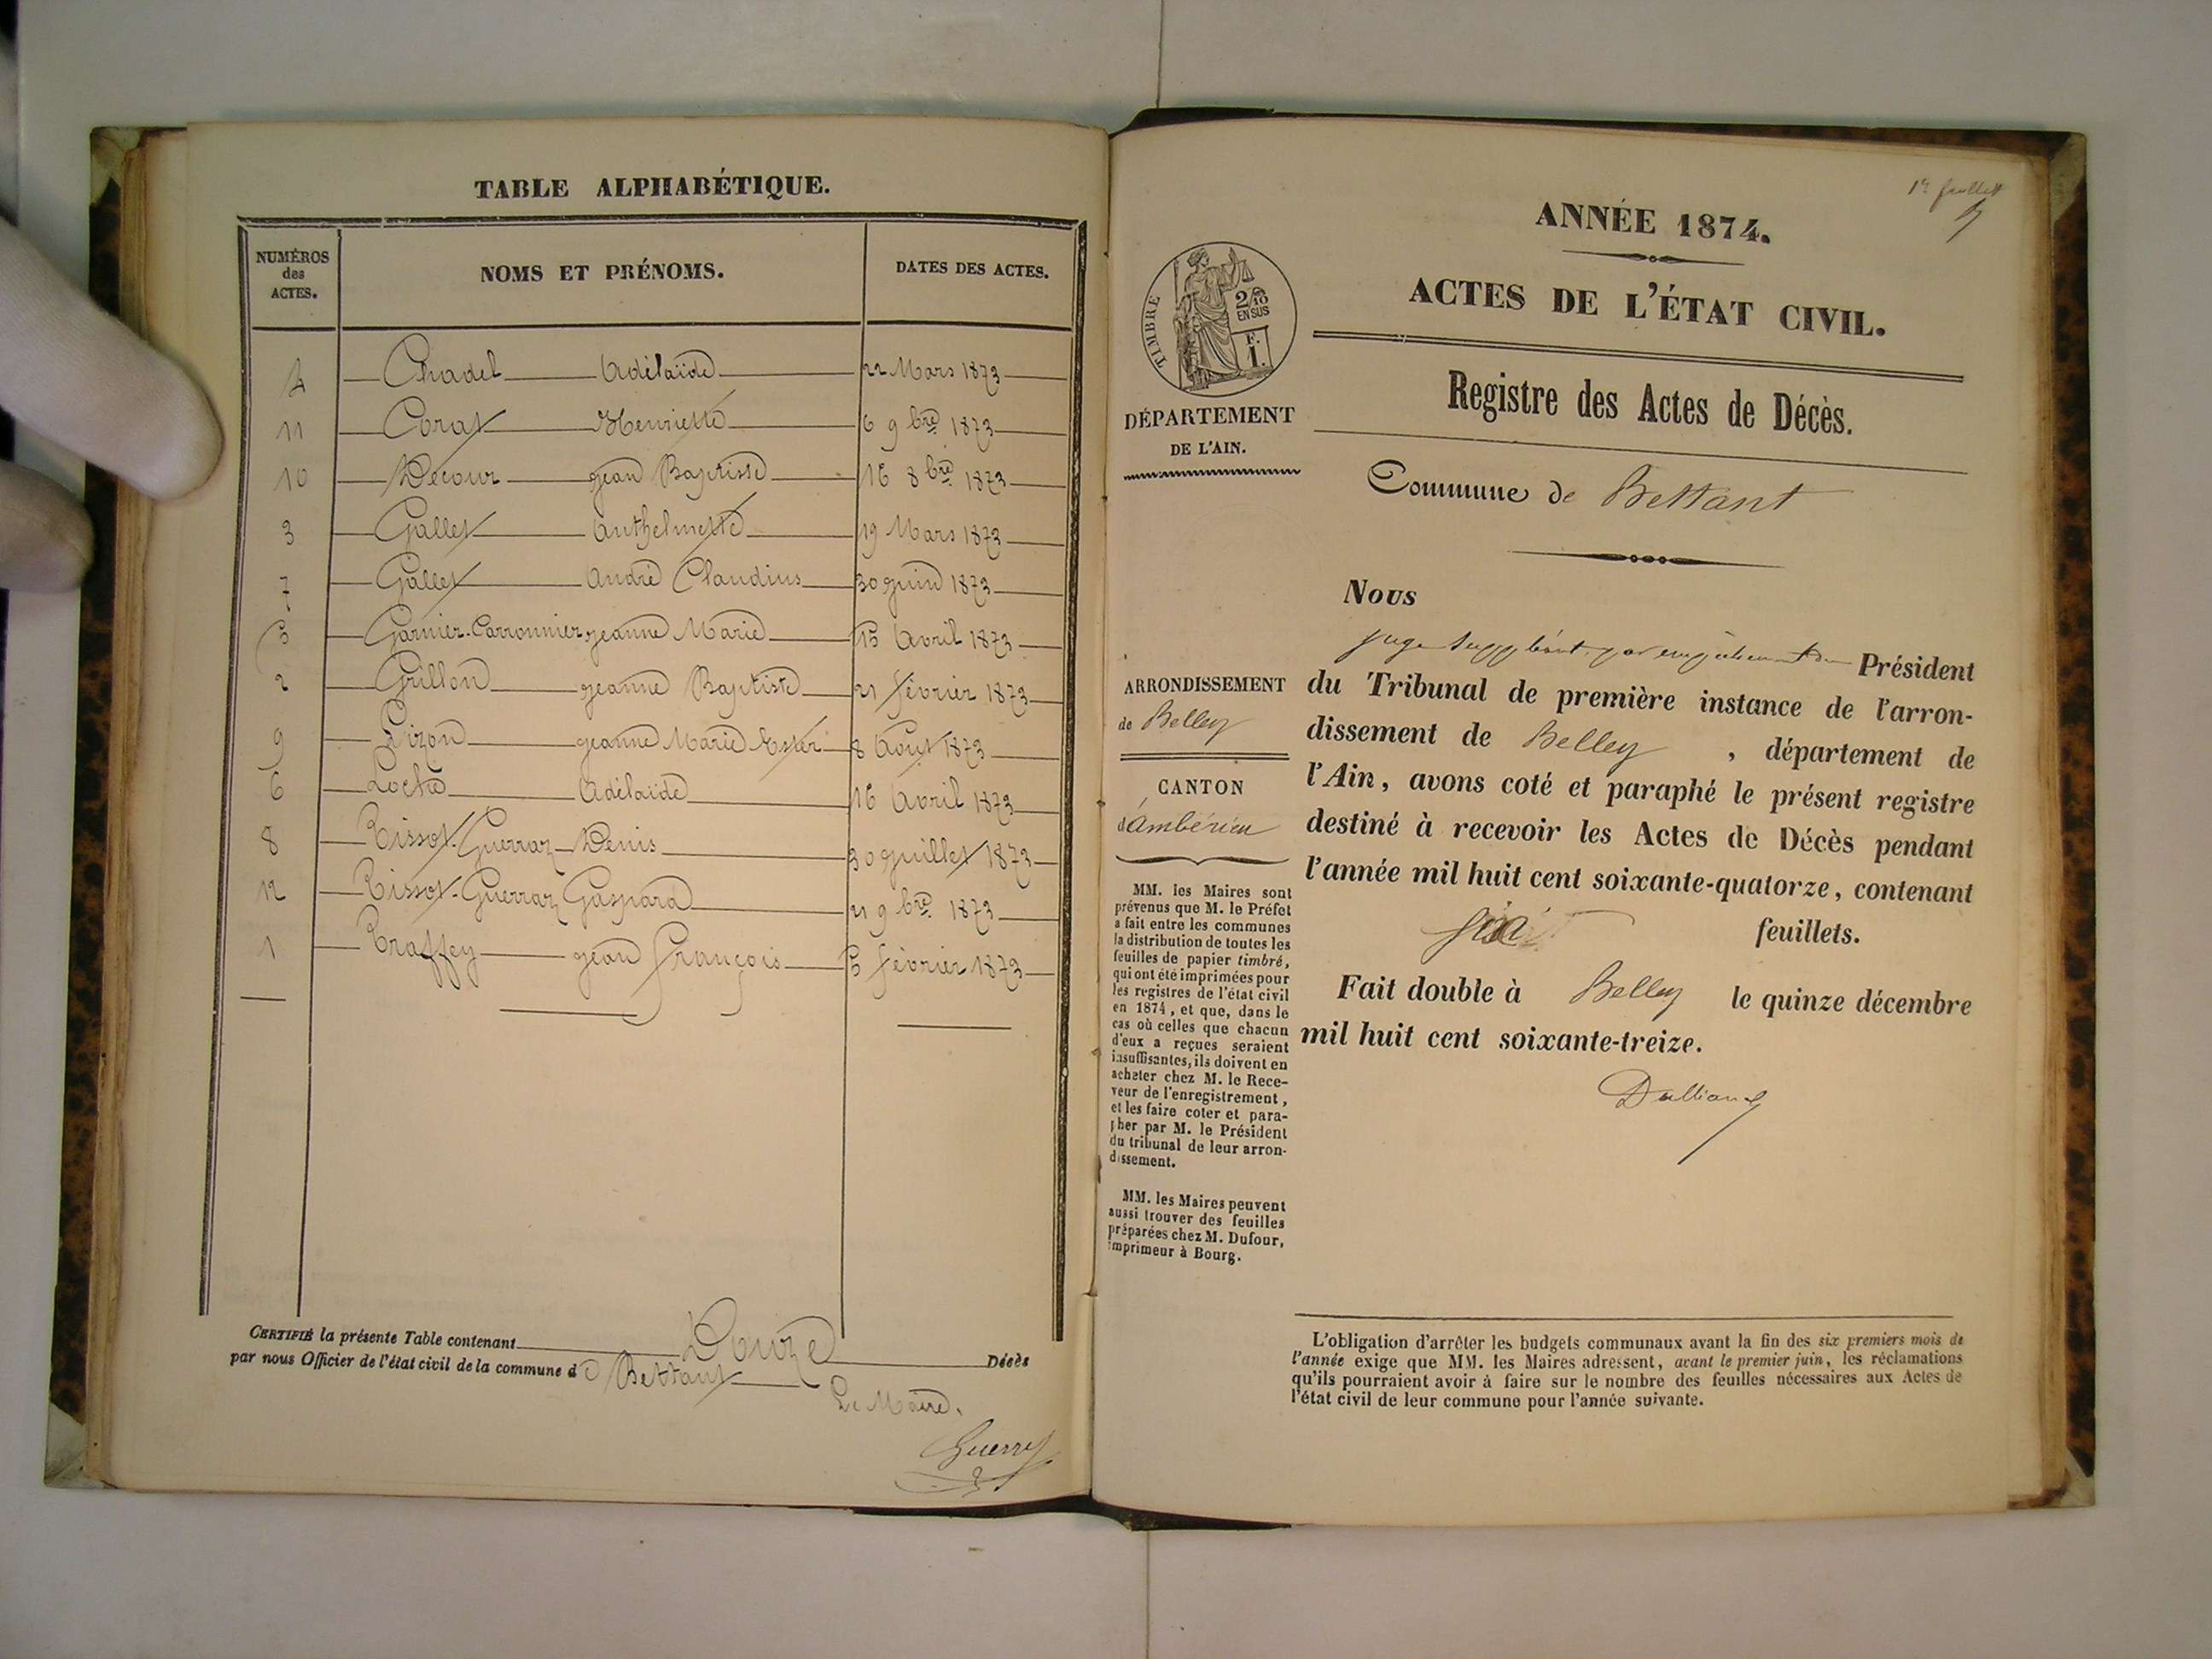 TABLE ALPHABÉTIQUE.
NUMÉROS des ACTES. NOMS ET PRÉNOMS. DATES DES ACTES.
4 Chadel Adélaïde 22 Mars 1873
11 Corat Henriette 6 9bre 1873
10 Decour jean Baptiste 16 8bre 1873
3 Gallet Anthelmette 19 Mars 1873
7 Gallet André Claudius 30 juin 1873
5 Garnier-Carronnier jeanne Marie 15 Avril 1873
2 Grillon jeanne Baptiste 21 février 1873
9 jeanne Marie Ester 8 Août 1873
6 Adélaïde 16 Avril 1873
8 Tissot-Guerraz Denis 30 juillet 1873
12 Tissot-Guerraz Gaspard 21 9bre 1873
1 Traffey jean François 5 février 1873
CERTIFIÉ la présente Table contenant Douze Décès
par nous Officier de l'état civil de la commune d e Bettant
Le Maire.
Guerry
1er feuillet
ANNÉE 1874.
ACTES DE L'ÉTAT CIVIL.
TIMBRE
2/10
EN SUS
F.
1.
DÉPARTEMENT
DE L'AIN.
Registre des Actes de Décès.
Commune de Bettant
Nous
juge suppléant, par empêchement du Président
du Tribunal de première instance de l'arron-
dissement de Belley , département de
l'Ain, avons coté et paraphé le présent registre
destiné à recevoir les Actes de Décès pendant
l'année mil huit cent soixante-quatorze, contenant
feuillets.
Fait double à Belley le quinze décembre
mil huit cent soixante-treize.
ARRONDISSEMENT
de Belley
CANTON
d'Ambérieu
MM. les Maires sont
prévenus que M. le Préfet
a fait entre les communes
la distribution de toutes les
feuilles de papier timbré,
qui ont été imprimées pour
les registres de l'état civil
en 1874, et que, dans le
cas où celles que chacun
d'eux a reçues seraient
insuffisantes, ils doivent en
acheter chez M. le Rece-
veur de l'enregistrement,
et les faire coter et para-
pher par M. le Président
du tribunal de leur arron-
dissement.
MM. les Maires peuvent
aussi trouver des feuilles
préparées chez M. Dufour,
imprimeur à Bourg.
L'obligation d'arrêter les budgets communaux avant la fin des six premiers mois de
l'année exige que MM. les Maires adressent, avant le premier juin, les réclamations
qu'ils pourraient avoir à faire sur le nombre des feuilles nécessaires aux Actes de
l'état civil de leur commune pour l'année suivante.